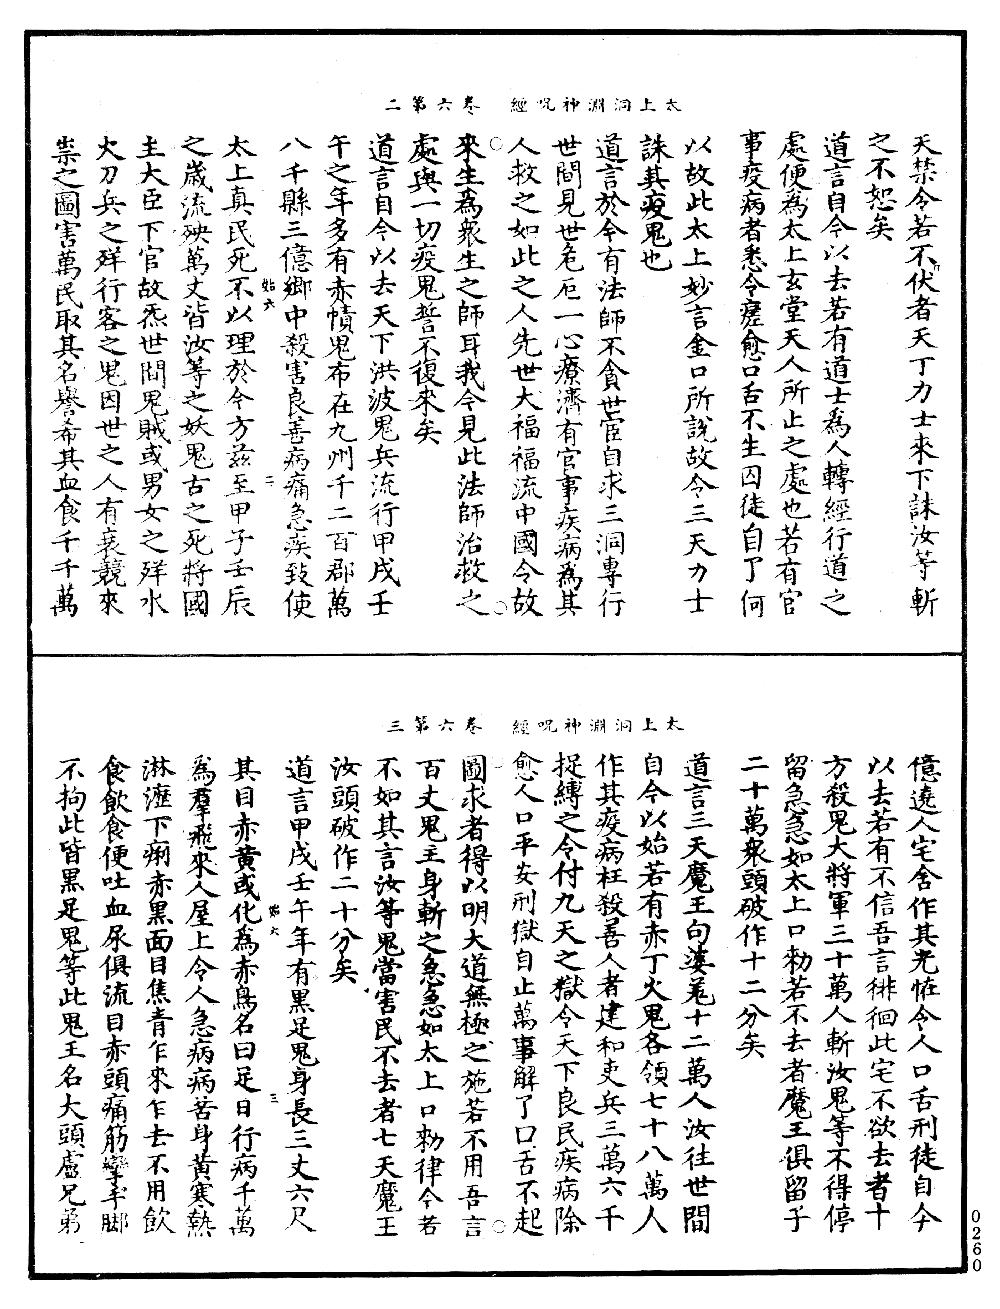 太上洞淵神呪經　卷六第二
天禁令若不伏者天丁力士來下誅汝等斬
之不恕矣
道言自今以去若有道士爲人轉經行道之
處便爲太上玄堂天人所止之處也若有官
事疫病者悉令瘥愈口舌不生囚徒自了何
以故此太上妙言金口所說故令三天力士
誅其疫鬼也
道言於今有法師不貪世宦自求三洞專行
世間見世危厄一心療濟有官事疾病爲其
人救之如此之人先世大福福流中國令故
來生爲衆生之師耳我今見此法師治救之
處與一切疫鬼誓不復來矣
道言自今以去天下洪波鬼兵流行甲戌壬
午之年多有赤幘鬼布在九州千二百郡萬
八千縣三億鄉中殺害良善病痛急疾致使
始六　二
太上真民死不以理於今方兹至甲子壬辰
之歲流殃萬丈皆汝等之妖鬼古之死將國
主大臣下官故炁世間鬼賊或男女之殍水
火刀兵之殍行客之鬼因世之人有衰競來
祟之圖害萬民取其名譽希其血食千千萬
太上洞淵神呪經　卷六第三
億遶人宅舍作其光怪令人口舌刑徒自今
以去若有不信吾言徘徊此宅不欲去者十
方殺鬼大將軍三十萬人斬汝鬼等不得停
留急急如太上口勑若不去者魔王俱留子
二十萬衆頭破作十二分矣
道言三天魔王句婆茤十二萬人汝往世間
自今以始若有赤丁火鬼各領七十八萬人
作其疫病枉殺善人者建和吏兵三萬六千
捉縛之令付九天之獄令天下良民疾病除
愈人口平安刑獄自止萬事解了口舌不起
圖求者得以明大道無極之施若不用吾言
百丈鬼主身斬之急急如太上口勑律令若
不如其言汝等鬼當害民不去者七天魔王
汝頭破作二十分矣
道言甲戌壬午年有黑足鬼身長三丈六尺
始六　三
其目赤黃或化爲赤鳥名曰足日行病千萬
爲羣飛來人屋上令人急病病苦身黃寒熱
淋瀝下痢赤黑面目焦青乍來乍去不用飲
食飲食便吐血尿俱流目赤頭痛筋攣手脚
不拘此皆黑足鬼等此鬼王名大頭盧兄弟
0260